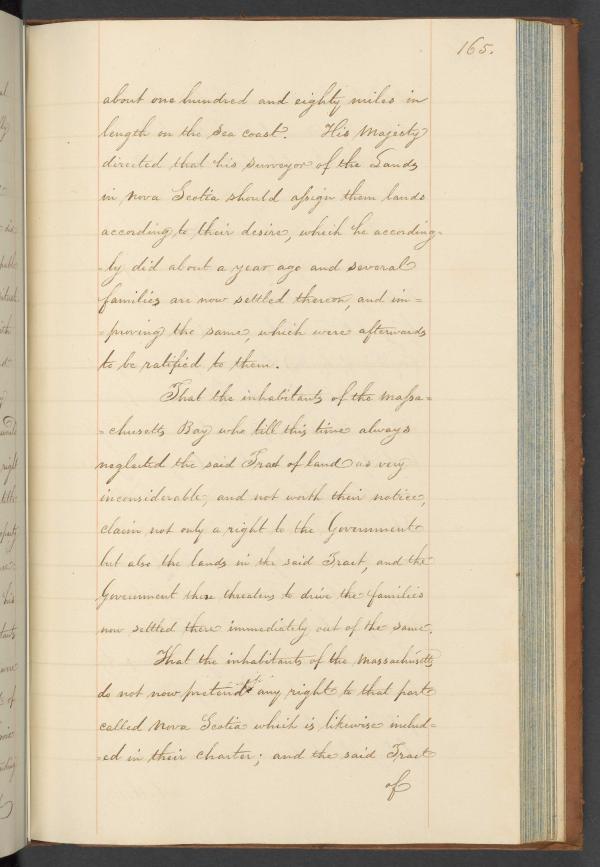 165.
about one hundred and eighty miles in
length on the sea coast. His Majesty
directed that his surveyor of the Lands
in Nova Scotia should assign them lands
according to their desire, which he according-
-ly did about a year ago and several
families are now settled thereon, and im=
=proving the same, which were afterwards
to be ratified to them.
That the inhabitants of the Massa=
=chusetts Bay who till this time always
neglected the said Tract of land as very
inconsiderable, and not worth their notice,
claim not only a right to the Government
but also the lands in the said Tract, and the
Government there threatens to drive the families
now settled there immediately out of the same.
That the inhabitants of the Massachusetts
do not now pretend to any right to that part
called Nova Scotia which is likewise includ=
=ed in their charter; and the said Tract
of